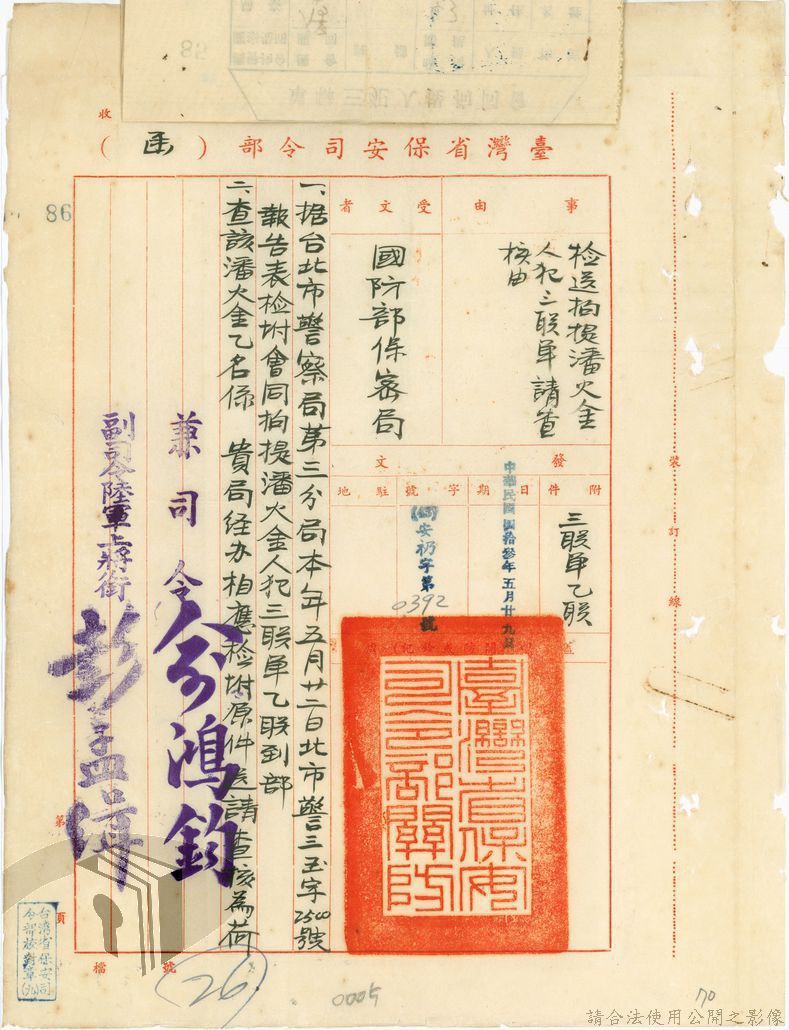 收
臺灣省保安司令部（函）
事由
检送拍提潘火金
人犯三联单請查
核由
受文者
國防部保密局
附件
三联单乙联
發文
日期
中華民國肆拾參年五月廿九日
字號
安礽字第
0392
號
駐地
一、据台北市警察局第三分局本年五月廿二日北市警三玉字2500號
報告表检附會同拍提潘火金人犯三联单乙联到部
二、查該潘火金乙名係 貴局经办相應检附原件送請查核為荷
兼司令俞鴻鈞
副司令陸軍上將銜彭孟緝
臺灣省保安司令部關防
裝訂線
第
頁
檔
號
台湾省保安司
令部校對章
86
26
0005
70
請合法使用公開之影像